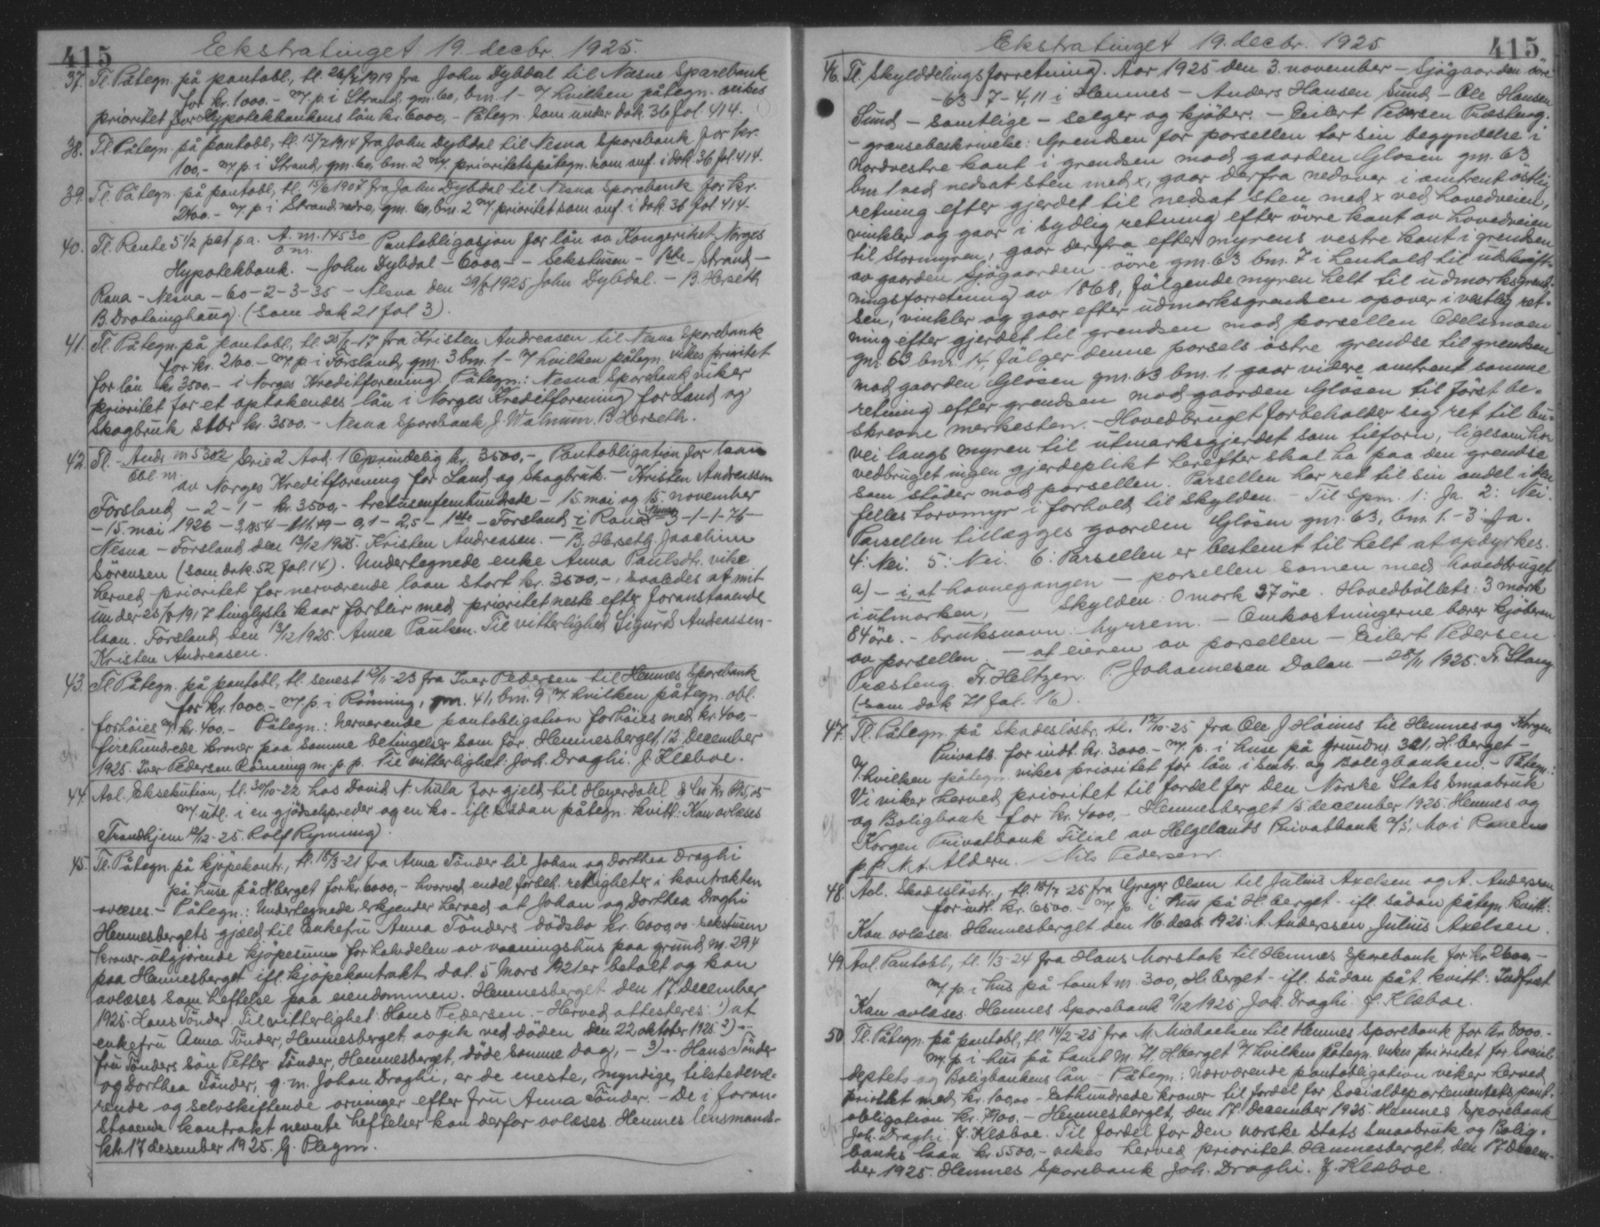 415
Ekstratinget 19. decbr. 1925.
37. Tl. Påtegn. på pantobl., tl. 26/2 1919 fra John Dybdal til Nesna Sparebank
for kr. 1000.- m/ p i Strand, gm. 60, bm. 1 - m/ hvilken påtegn. vikes
prioritet for Hypotekbankens lån kr. 6000,- Påtegn. som under dok 36 fol 414.
38. Tl. Påtegn. på pantobl., tl. 15/7 1914 fra John Dybdal til Nesna Sparebank for kr.
100,- m/ p i Strand, gm. 60, bm. 2 m/ prioritetspåtegn. som anf. i dok. 36 fol 414.
39. Tl. Påtegn. på pantobl., tl. 1907 fra John Dybdal til Nesna Sparebank for kr.
2400.- m/ p i Strand nedre, gm. 60, bm. 2 m/ prioritet som anf. i dok. 36 fol 414.
40. Tl. Rente 5 1/2 pct p.a. A. m. 14530 Pantobligasjon for lån av Kongeriket Norges
Hypotekbank. - John Dybdal - 6000,- - sekstusen - 1ste - Strand -
Rana - Nesna - 60 - 2 - 3 - 35 - Nesna den 29/8 1925 John Dybdal. - B. Horseth
B. Drotninghaug. (Som dok 21 fol 3).
41. Tl. Påtegn. på pantobl., tl. -17 fra Kristen Andreasen til Nesna Sparebank
for kr. 2100.- m/ p i Forsland, gm. 3 bm. 1 - m/ hvilken påtegn. vikes prioritet
for lån kr 3500.- i Norges Kreditforening Påtegn.: Nesna Sparebank viker
prioritet for et optakendes lån i Norges Kreditforening for Land og
Skogbruk stor kr. 3500.- Nesna Sparebank J. Walnum. B. Horseth.
42. Tl. - Andr. m 5302 Serie 2 Avd. 1 Oprindelig kr. 3500,- Pantobligation for laan
Obl m. av Norges Kreditforening for Land og Skogbruk. - Kristen Andreassen
Forsland - 2 - 1 - kr. 3500,- tretusenfemhundrede - 15. mai og 15. november
- 15. mai 1926 - - 0,1 - 2,5 - 1ste - Forsland i Rana Nesna 3-1-1-76 -
Nesna - Forsland den 12/12 1925. Kristen Andreasen. - B. Horseth Joachim
Sörensen (som dok. 52 fol. 14). Undertegnede enke Anna Paulsdtr. vike
herved prioritet for nerværende laan stort kr. 3500,-, saaledes at mit
under 25/8 1917 tinglyste kaar forblir med prioritet neste efter foranstaaende
laan. Forsland den 12/12 1925. Anna Paulsen. Til vitterlighet Sigurd Andreassen -
Kristen Andreasen.
43. Tl Påtegn på pantobl., tl. senest -23 fra Iver Pedersen til Hemnes Sparebank
for kr. 1000.- m/ p. i Rönning, gm. 41, bm. 9 m/ hvilken påtegn. obl.
forhöies m/ kr. 400,- Påtegn.: Nerværende pantobligation forhöies med kr. 400,-
firehundrede kroner paa samme betingelser som för. Hemnesberget, 12. december
1925. Iver Pedersen Rönning m. p. p. Til vitterlighet: Joh. Draghi. J. Klæboe.
44. Avl. Eksekution, tl. 30/10-22 hos David N. Mula for gjeld til Heyerdahl & Co kr
m/ utl. i en gjödselspreder og en ko - ifl. sådan påtegn. kvitt. Kan avlæses
Trondhjem 12/12-25. Rolf Rynning.
45. Tl. Påtegn på kjöpekontr., tl. 18/3-21 fra Anna Tönder til Johan og Dorthea Draghi
på huse på H.berget for kr. 6000,- hvorved endel forbeh. rettigheter i kontrakten
avlæses - Påtegn.: Undertegnede erkjender herved at Johan og Dorthea Draghi
Hemnesbergets gjæld til enkefru Anna Tönders dödsbo kr. 6000,00 sekstusen
kroner utgjörende kjöpesum for halvdelen av vaaningshus paa grund m. 294
paa Hemnesberget ifl. kjöpekontrakt dat. 5 Mars 1921 er betalt og kan
avlæses som heftelse paa eiendommen. Hemnesberget den 17. December
1925. Hans Tönder. Til vitterlighet Hans Pedersen. - Herved attesteres: 1) at
enkefru Anna Tönder, Hemnesberget avgik ved döden den 22 oktober 1925 2) -
fru Tönders sön Petter Tönder, Hemnesberget, döde samme dag, - 3) - Hans Tönder
og Dorthea Tönder, g. m. Johan Draghi, er de eneste, myndige, tilstedevæ-
rende og selvskiftende arvinger efter fru Anna Tönder. - De i foran-
staaende kontrakt nevnte heftelser kan derfor avlæses. Hemnes lensmands-
ktr. 17 desember 1925. G. Plegm.
415
Ekstratinget 19. decbr. 1925
46. Tl. Skylddelingsforretning. Aar 1925 den 3. november - Sjögaarden övre
- 63 - 7 - 4,11 i Hemnes - Anders Hansen Sund - Ole Hansen
Sund - samtlige - selger og kjöber. - Eilert Pedersen Præsteng.
- grænsebeskrivelse: Grendsen for parsellen tar sin begyndelse i
nordvestre kant i grendsen mod gaarden Glosen gm. 63
bm 1 ved nedsat sten med x, gaar derfra nedover i omtrent östlig
retning efter gjerdet til nedsat sten med x ved hovedveien,
vinkler og gaar i sydlig retning efter övre kant av hovedveien
til Stormyren, gaar derfra efter myrens vestre kant i grendsen
av gaarden Sjögaarden övre gm. 63 bm. 7 i henhold til utskift-
ningsforretning av 1868, fölgende myren helt til udmarksgrend-
sen, vinkler og gaar efter udmarksgrendsen opover i vestlig ret-
ning efter gjerdet til grendsen mod parsellen Edelsmoen
gm. 63 bm. 14, fölger denne parsels östre grendse til grendsen
mod gaarden Glösen gm. 63 bm. 1, gaar videre omtrent samme
retning efter grendsen mod gaarden Glösen til först be-
skrevne merkesten. - Hovedbruget forbeholder sig ret til bu-
vei langs myren til utmarksgjerdet som tilforn, ligesom ho-
vedbruget ingen gjerdeplikt herefter skal ha paa den grendse
som stöder mod parsellen. Parsellen har ret til sin andel i den
felles torvmyr i forhold til skylden. - Til Spm. 1: Ja. 2: Nei.
Parsellen tillægges gaarden Glösen gm. 63, bm. 1. - 3: Ja.
4: Nei. 5: Nei. 6: Parsellen er bestemt til helt at opdyrkes.
a) - i, at havnegangen - parsellen sammen med hovedbruget
i utmarken, - Skylden: 0 mark 37 öre. Hovedböllets: 3 mark
84 öre. - bruksnavn: Myrrem. - Omkostningerne bærer kjöberen
av parsellen - at eieren av parsellen - Eilert Pedersen
Præsteng. Fr Heltzen P. Johannesen Dalan - 28/11 1925. Fr. Stang
(som dok 71 fol. 16)
47. Tl. Påtegn. på Skadeslöstbr., tl. 12/10-25 fra Ole J Höines til Hemnes og Korgen
Privatb. for indt. kr. 3000.- m/ p. i huse på grundnr. 321, H.berget -
m/ hvilken påtegn. vikes prioritet for lån i Smbr. og Boligbanken. - Påtegn.:
Vi viker herved prioritet til fordel for Den Norske Stats Smaabruk
og Boligbank for kr. 4000,- Hemnesberget 15 december 1925 Hemnes og
Korgen Privatbank Filial av Helgelands Privatbank A/S, Mo i Ranen
p. p. M. t. Aldern. Nils Pedersen.
48. Avl. Skadeslöstbr., tl. 18/7 25 fra Greger Olsen til Julius Axelsen og A. Anderssen
for indt. kr. 6500.- m/ p. i hus på H.berget - ifl. sådan påtegn. kvitt:
Kan avlæses. Hemnesberget den 16 decb 1925. A. Anderssen. Julius Axelsen.
49. Avl. Pantobl., tl. 1/3-24 fra Hans Morstok til Hemnes Sparebank for kr. 2600,-
m/ p. i hus på tomt m. 300, H.berget - ifl. sådan påt. kvitt.: Indfriet
Kan avlæses. Hemnes Sparebank 9/12 1925 Joh. Draghi. J. Klæboe.
50. Tl. Påtegn. på pantobl., tl. 14/2-25 fra M. Michaelsen til Hemnes Sparebank for kr. 8000.-
m/ p i hus på tomt m. 71, H.berget m/ hvilken påtegn. vikes prioritet for Social
deptets og Boligbankens lån - Påtegn.: Nærværende pantobligation viker herved
prioritet med kr. 100,00 - Ethundrede kroner til fordel for Socialdepartementets pant-
obligation kr. 2900.- Hemnesberget, den 17. december 1925. Hemnes Sparebank
Joh. Draghi J. Klæboe. Til fordel for Den norske stats Smaabruk og Bolig-
banks laan kr. 5500,- vikes herved prioritet Hemnesberget, den 17 decem-
ber 1925. Hemnes Sparebank Joh. Draghi. J. Klæboe.